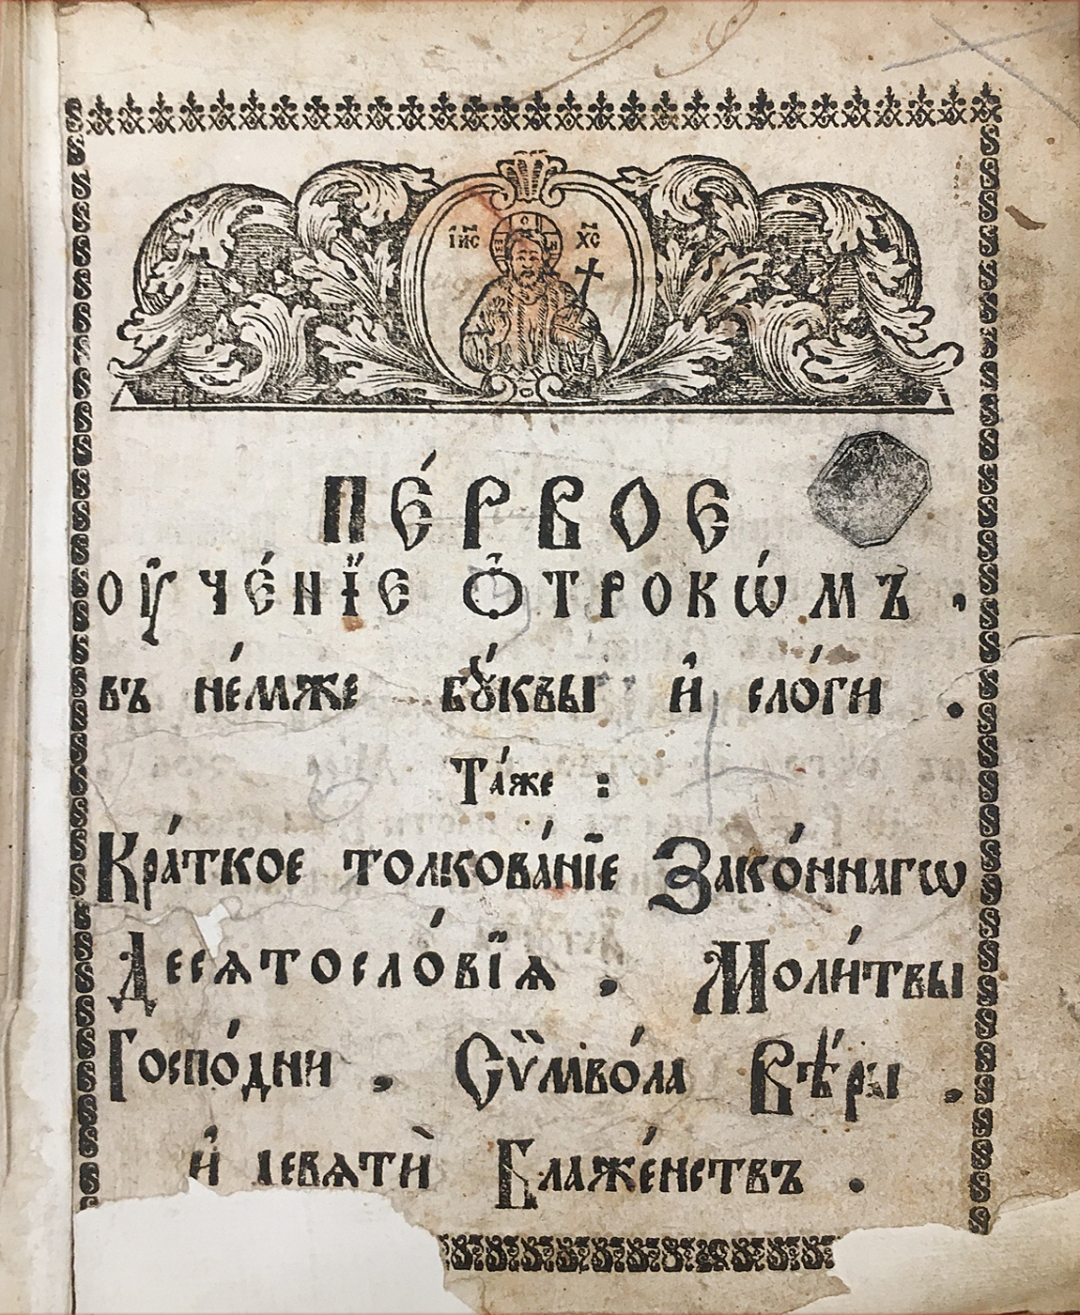 І҆и҃с Х҃с
ПЕ́РВОЕ
ОУ҆ЧЕ́НЇЕ Ѻ҆ТРОКѠ́МЪ .
въ не́мже бꙋ́квы и҆ сло́ги .
Та́же :
Кра́ткое толкова́нїе Зако́ннагѡ
Десѧтосло́вїѧ , Моли́твы
Госпо́дни , Сѷмво́ла Вѣ́ры ,
и҆ девѧтѝ Блаже́нствъ .